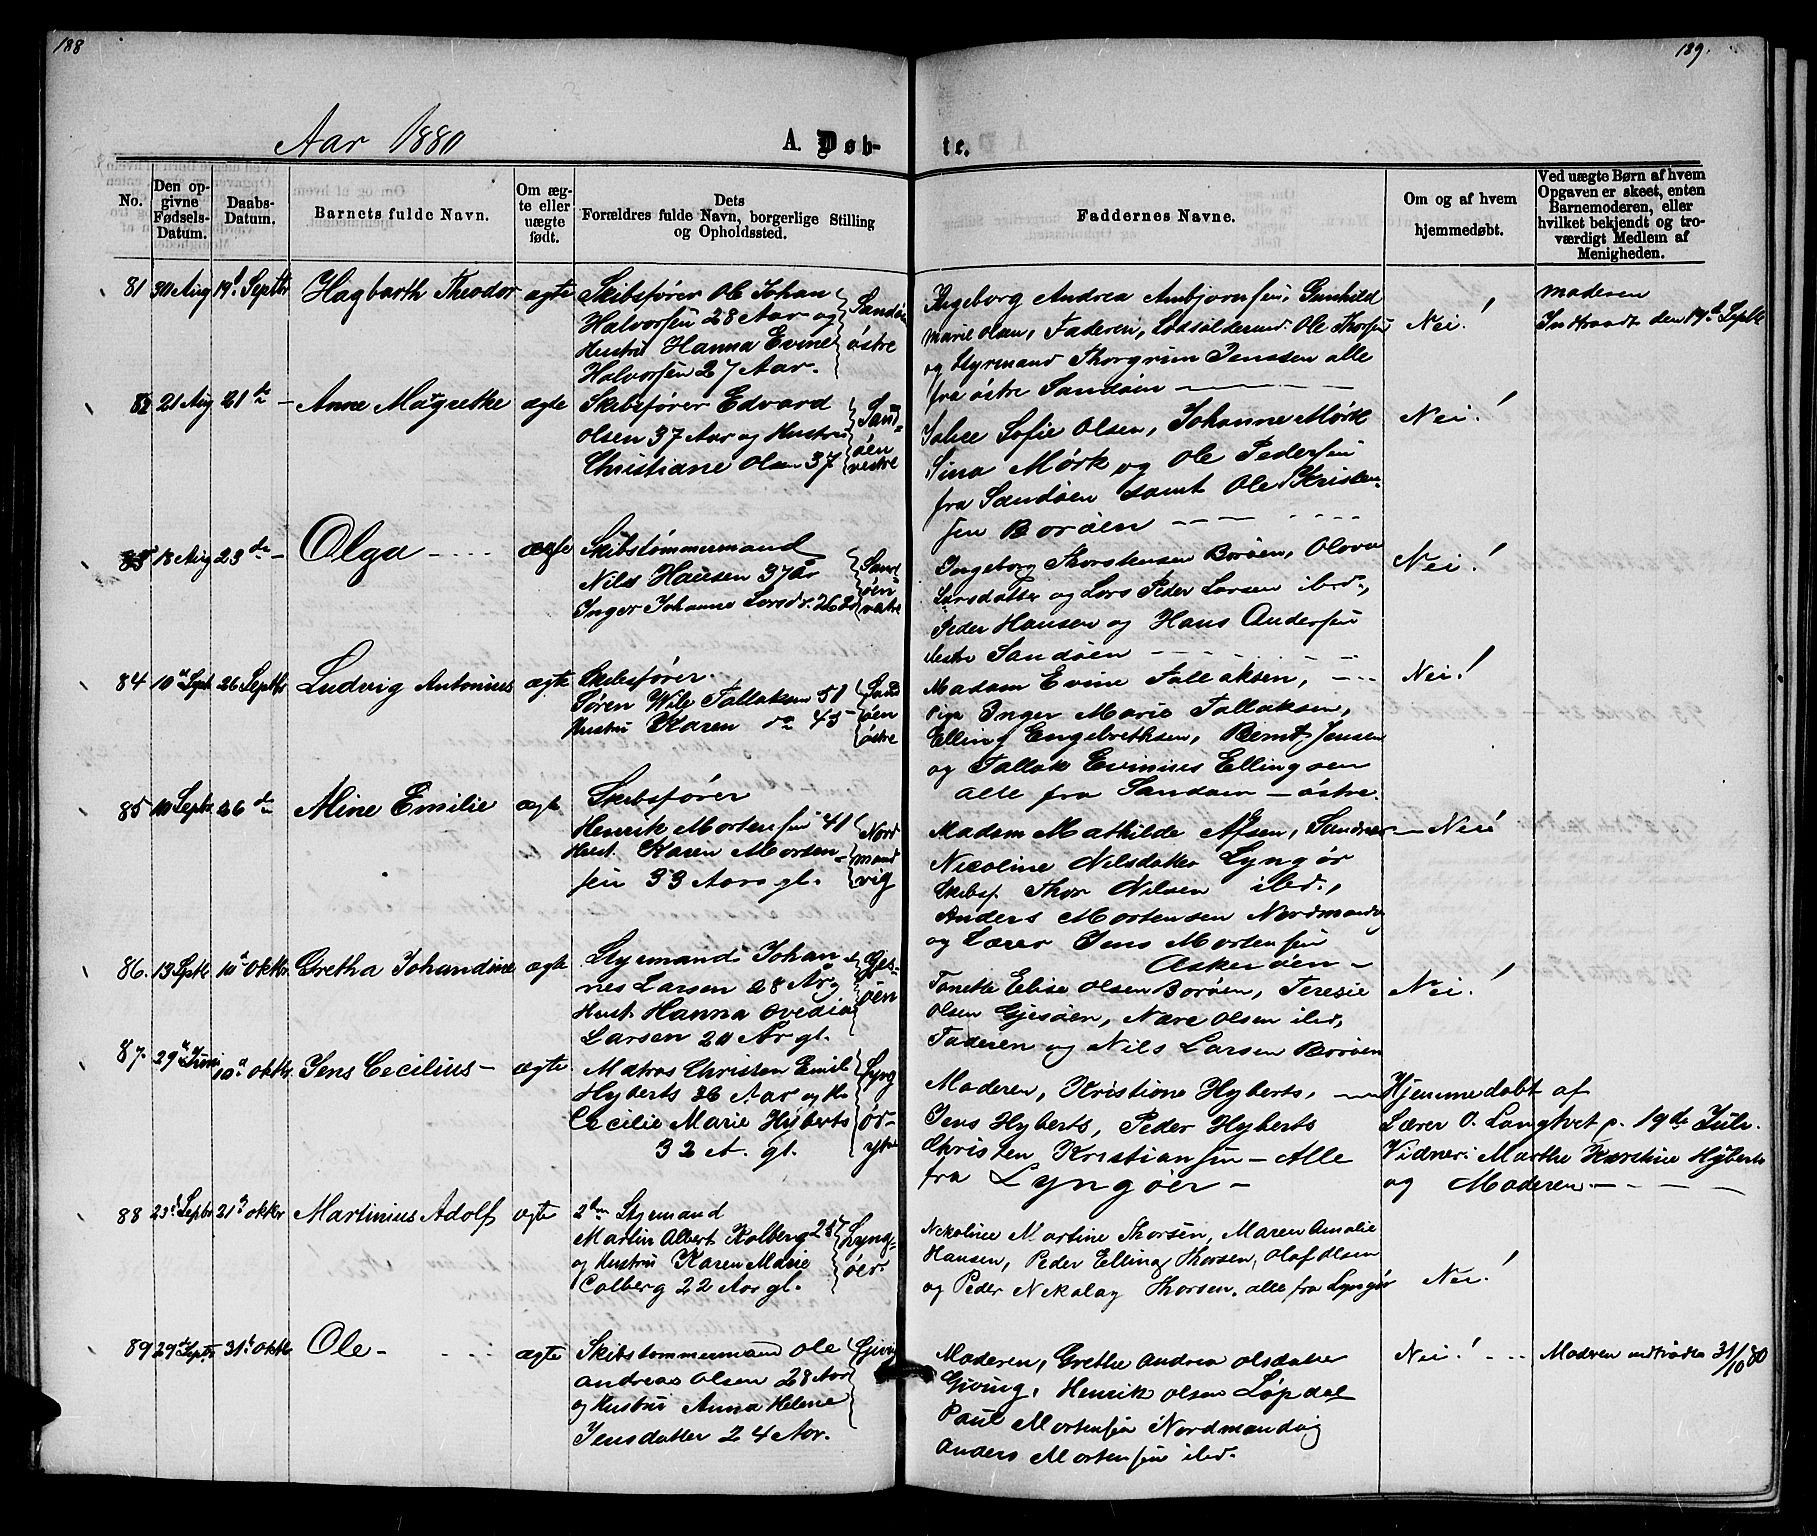 188
189.
Aar 1880
A. Døb-
te.
No.
Den op-
givne
Fødsels-
Datum.
Daabs-
Datum.
Barnets fulde Navn.
Om æg-
te eller
uægte
født.
Dets
Forældres fulde Navn, borgerlige Stilling
og Opholdssted.
Faddernes Navne.
Om og af hvem
hjemmedøbt.
Ved uægte Børn af hvem
Opgaven er skeet, enten
Barnemoderen, eller
hvilket bekjendt og tro-
værdigt Medlem af
Menigheden.
81 30 Aug 19d Septbr Hagbarth Theodor ægte
Skibsfører Ole Johan
Halvorsen 28 Aar og
Hustru Hanna Evine
Halvorsen 27 Aar.
Sandøen
østre
Ingeborg Andrea Anbjørnsen, Gunhild
Marie Olsen, Faderen, Ole Thorsen
og Styrmand Thorgrim Jenssen alle
fra østre Sandøen
Nei!
Moderen
Indtraadt den 19d Septbr
82 21 Aug 21de - Anne Magrethe ægte
Skibsfører Edvard
Olsen 37 Aar og Hustru
Christiane Olsen 37
Sand=
øen
vestre
Sofie Olsen, Johanne Mørk
Sina Mørk og Ole Pedersen
fra Sandøen samt Ole Kristen-
sen Borøen
Nei!
83 18 Aug 23de - Olga - ægte
Skibstømmermand
Nils Hansen 37 år
Inger Johanne Larsdr. 26
Sand
øen
vestre
Ingeborg Thorstensen Borøen, Olova
Larsdatter og Lars Peder Larsen ibid.,
Peder Hansen og Hans Andersen
vestre Sandøen
Nei!
84 10d Sept 26 Septbr Ludvig Antonius ægte
Skibsfører
Søren Wile Tallaksen 51
Hustru Karen do 45 -
Sand
øen
østre
Madam Evine Tallaksen,
Pige Inger Marie Tallaksen,
Elling Engebrethsen, Bernt Jensen
og Tallak Evinius Ellingsen
alle fra Sandøen - østre.
Nei!
85 10 Septbr 26 de Mine Emilie ægte
Skibsfører
Henrik Mortensen 41
Hust. Karen Morten-
sen 33 Aar gl.
Nord
mand
vig
Madam Mathilde Afsen, Sandnes
Nicoline Nilsdatter Lyngør
Skibsf. Thor Nilsen ibid.,
Anders Mortensen Nordmandv
og Lærer Jens Mortensen
Askerøen -
- Nei!
86. 13 Septbr 10d Oktbr Gretha Johandine ægte
Styrmand Johan-
nes Larsen 28 År og
Hust. Hanna Ovedia
Larsen 20 År gl.
Gjes-
øen
Tonette Elise Olsen Borøen, Teresie
Olsen Gjesøen, Nære Olsen ibid,
Faderen og Nils Larsen Borøen
Nei!
87. 29d Juni 10d Oktbr Jens Cecilius - ægte
Matros Christen Emil
Hyberts 36 Aar og H.
Cecilie Marie Hyberts
32 A. gl.
Lyng
ør-
ytre
Moderen, Kristiane Hyberts,
Jens Hyberts, Peder Hyberts
Christen Kristiansen - Alle
fra Lyngøer -
Hjemmedøbt af
Lærer O. Langtvet p. 19de Juli.
Vidner: Marthe Karstine Hyberts
og Moderen
88 23d Septbr 21d Oktbr Martinius Adolf ægte
2den Styrmand
Martin Albert Kolberg 25
og Hustru Karen Marie
Colberg 22 Aar gl.
Lyng=
øer
Nekoline Martine Thorsen, Maren Amalie
Hansen, Peder Elling Thorsen, Olaf Olsen
og Peder Nekolay Thorsen, alle fra Lyngør
Nei!
89 29d Septbr 31d Oktbr Ole - ægte
Skibstømmermand Ole
Andreas Olsen 28 Aar
og Hustru Anna Helene
Jensdatter 24 Aar.
Moderen, Grethe Andrea Olsdatter
Giving, Henrik Olsen Løpdal
Paul Mortensen Nordmandvig
Anders Mortensen ibid.
Nei!
Modren indtrådte 31/10 80